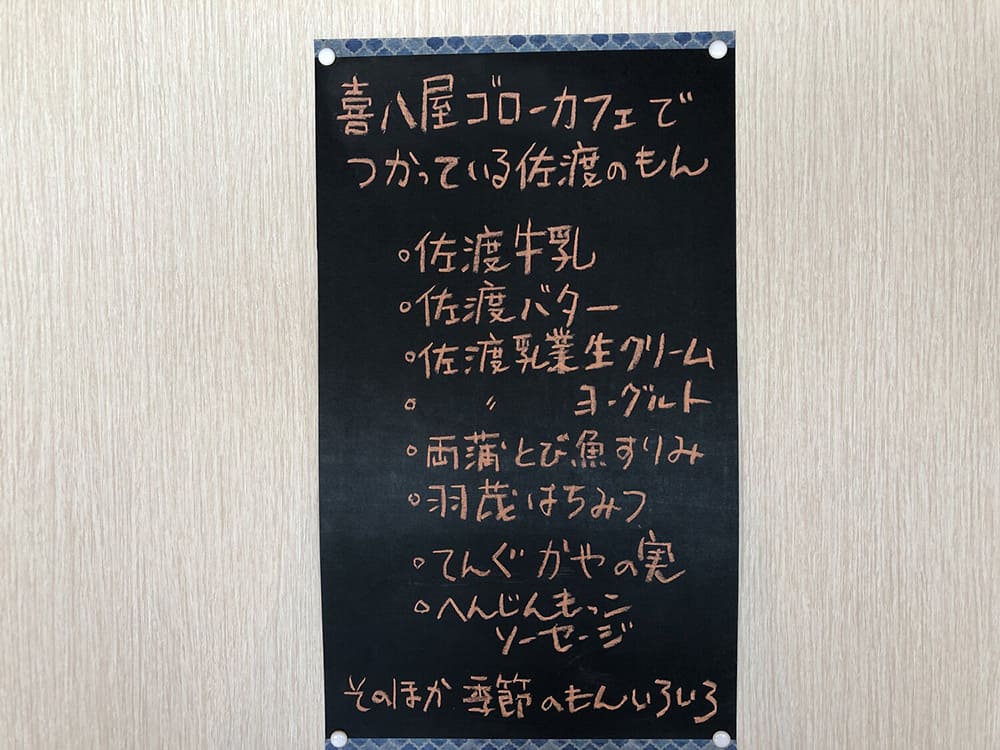 喜八屋ゴローカフェで
つかっている佐渡のもん
。佐渡牛乳
。佐渡バター
。佐渡乳業生クリーム
。 〃 ヨーグルト
。両蒲とび魚すりみ
。羽茂はちみつ
。てんぐ かやの実
。へんじんもっこ
ソーセージ
そのほか 季節のもんいろいろ